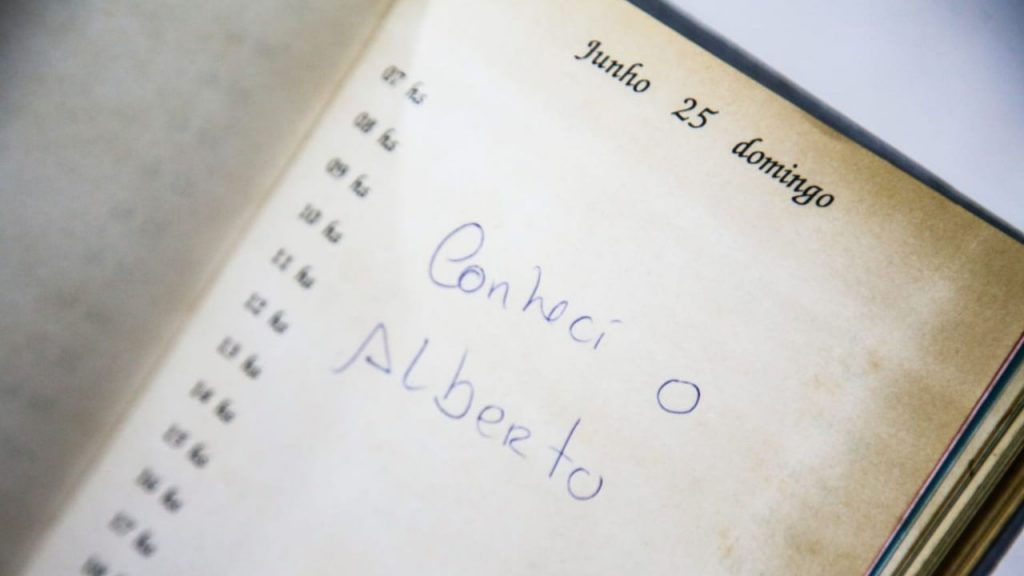 Junho 25 domingo
07 hs
08 hs
09 hs
10 hs
11 hs
12 hs
13 hs
14 hs
15 hs
16 hs
17 hs
Conheci o
Alberto